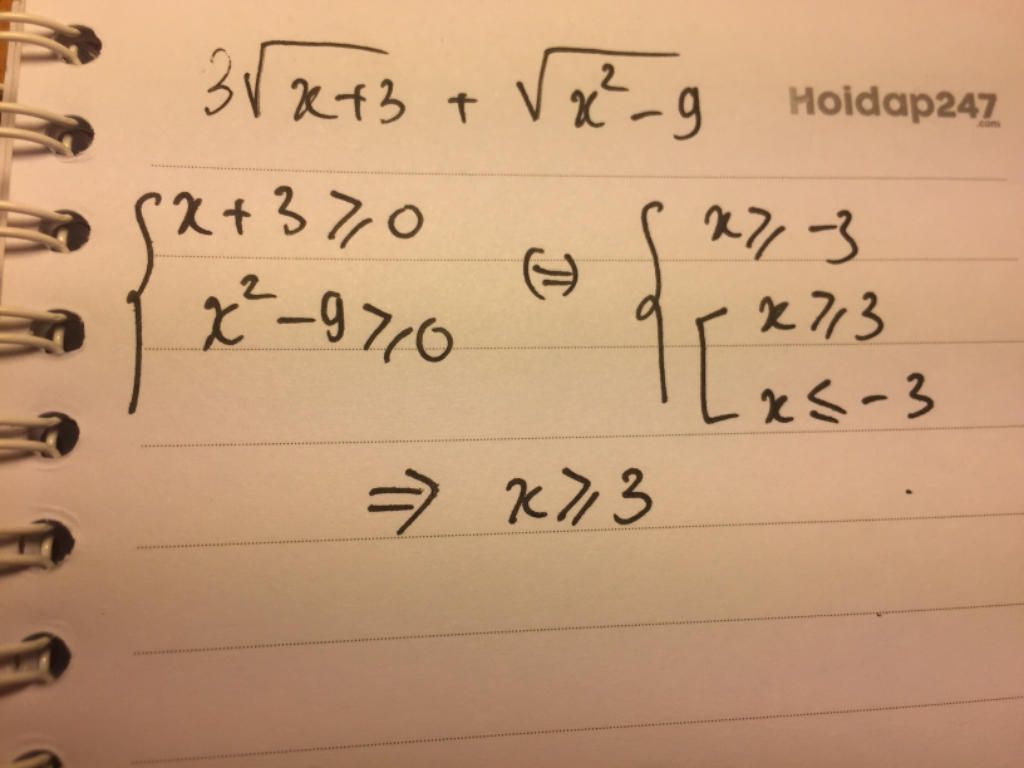 3√x+3 + √x²-9
Hoidap247
.com
{ x+3 ⩾ 0 (=) { x ⩾ -3
x²-9 ⩾ 0 [ x ⩾ 3
x ≤ -3
=> x ⩾ 3